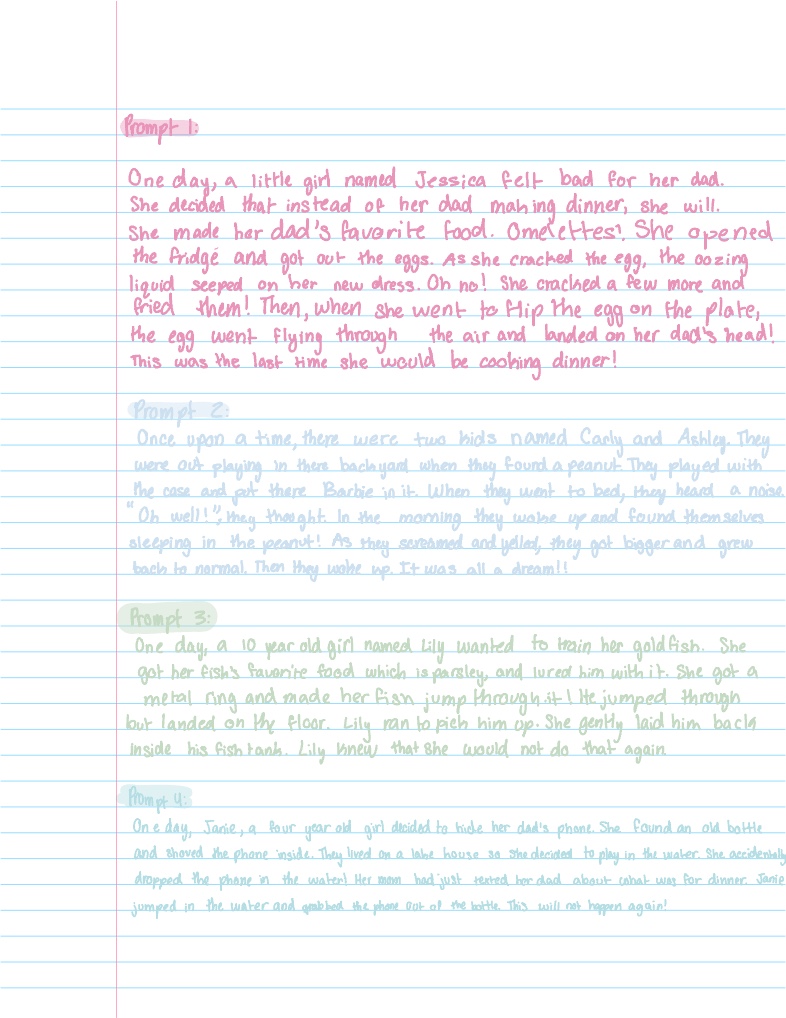 Prompt 1:
One day, a little girl named Jessica felt bad for her dad.
She decided that instead of her dad making dinner, she will.
She made her dad's favorite food. Omelettes! She opened
the fridge and got out the eggs. As she cracked the egg, the oozing
liquid seeped on her new dress. Oh no! She cracked a few more and
fried them! Then, when she went to flip the egg on the plate,
the egg went flying through the air and landed on her dad's head!
This was the last time she would be cooking dinner!
Prompt 2:
Once upon a time, there were two kids named Carly and Ashley. They
were out playing in there backyard when they found a peanut. They played with
the case and put there Barbie in it. When they went to bed, they heard a noise.
"Oh well!", they thought. In the morning they woke up and found themselves
sleeping in the peanut! As they screamed and yelled, they got bigger and grew
back to normal. Then they woke up. It was all a dream!!
Prompt 3:
One day, a 10 year old girl named Lily wanted to train her goldfish. She
got her fish's favorite food which is parsley, and lured him with it. She got a
metal ring and made her fish jump through it! He jumped through
but landed on the floor. Lily ran to pick him up. She gently laid him back
inside his fish tank. Lily knew that she would not do that again
Prompt 4:
One day, Janie, a four year old girl decided to hide her dad's phone. She found an old bottle
and shoved the phone inside. They lived on a lake house so she decided to play in the water. She accidentally
dropped the phone in the water! Her mom had just texted her dad about what was for dinner. Janie
jumped in the water and grabbed the phone out of the bottle. This will not happen again!